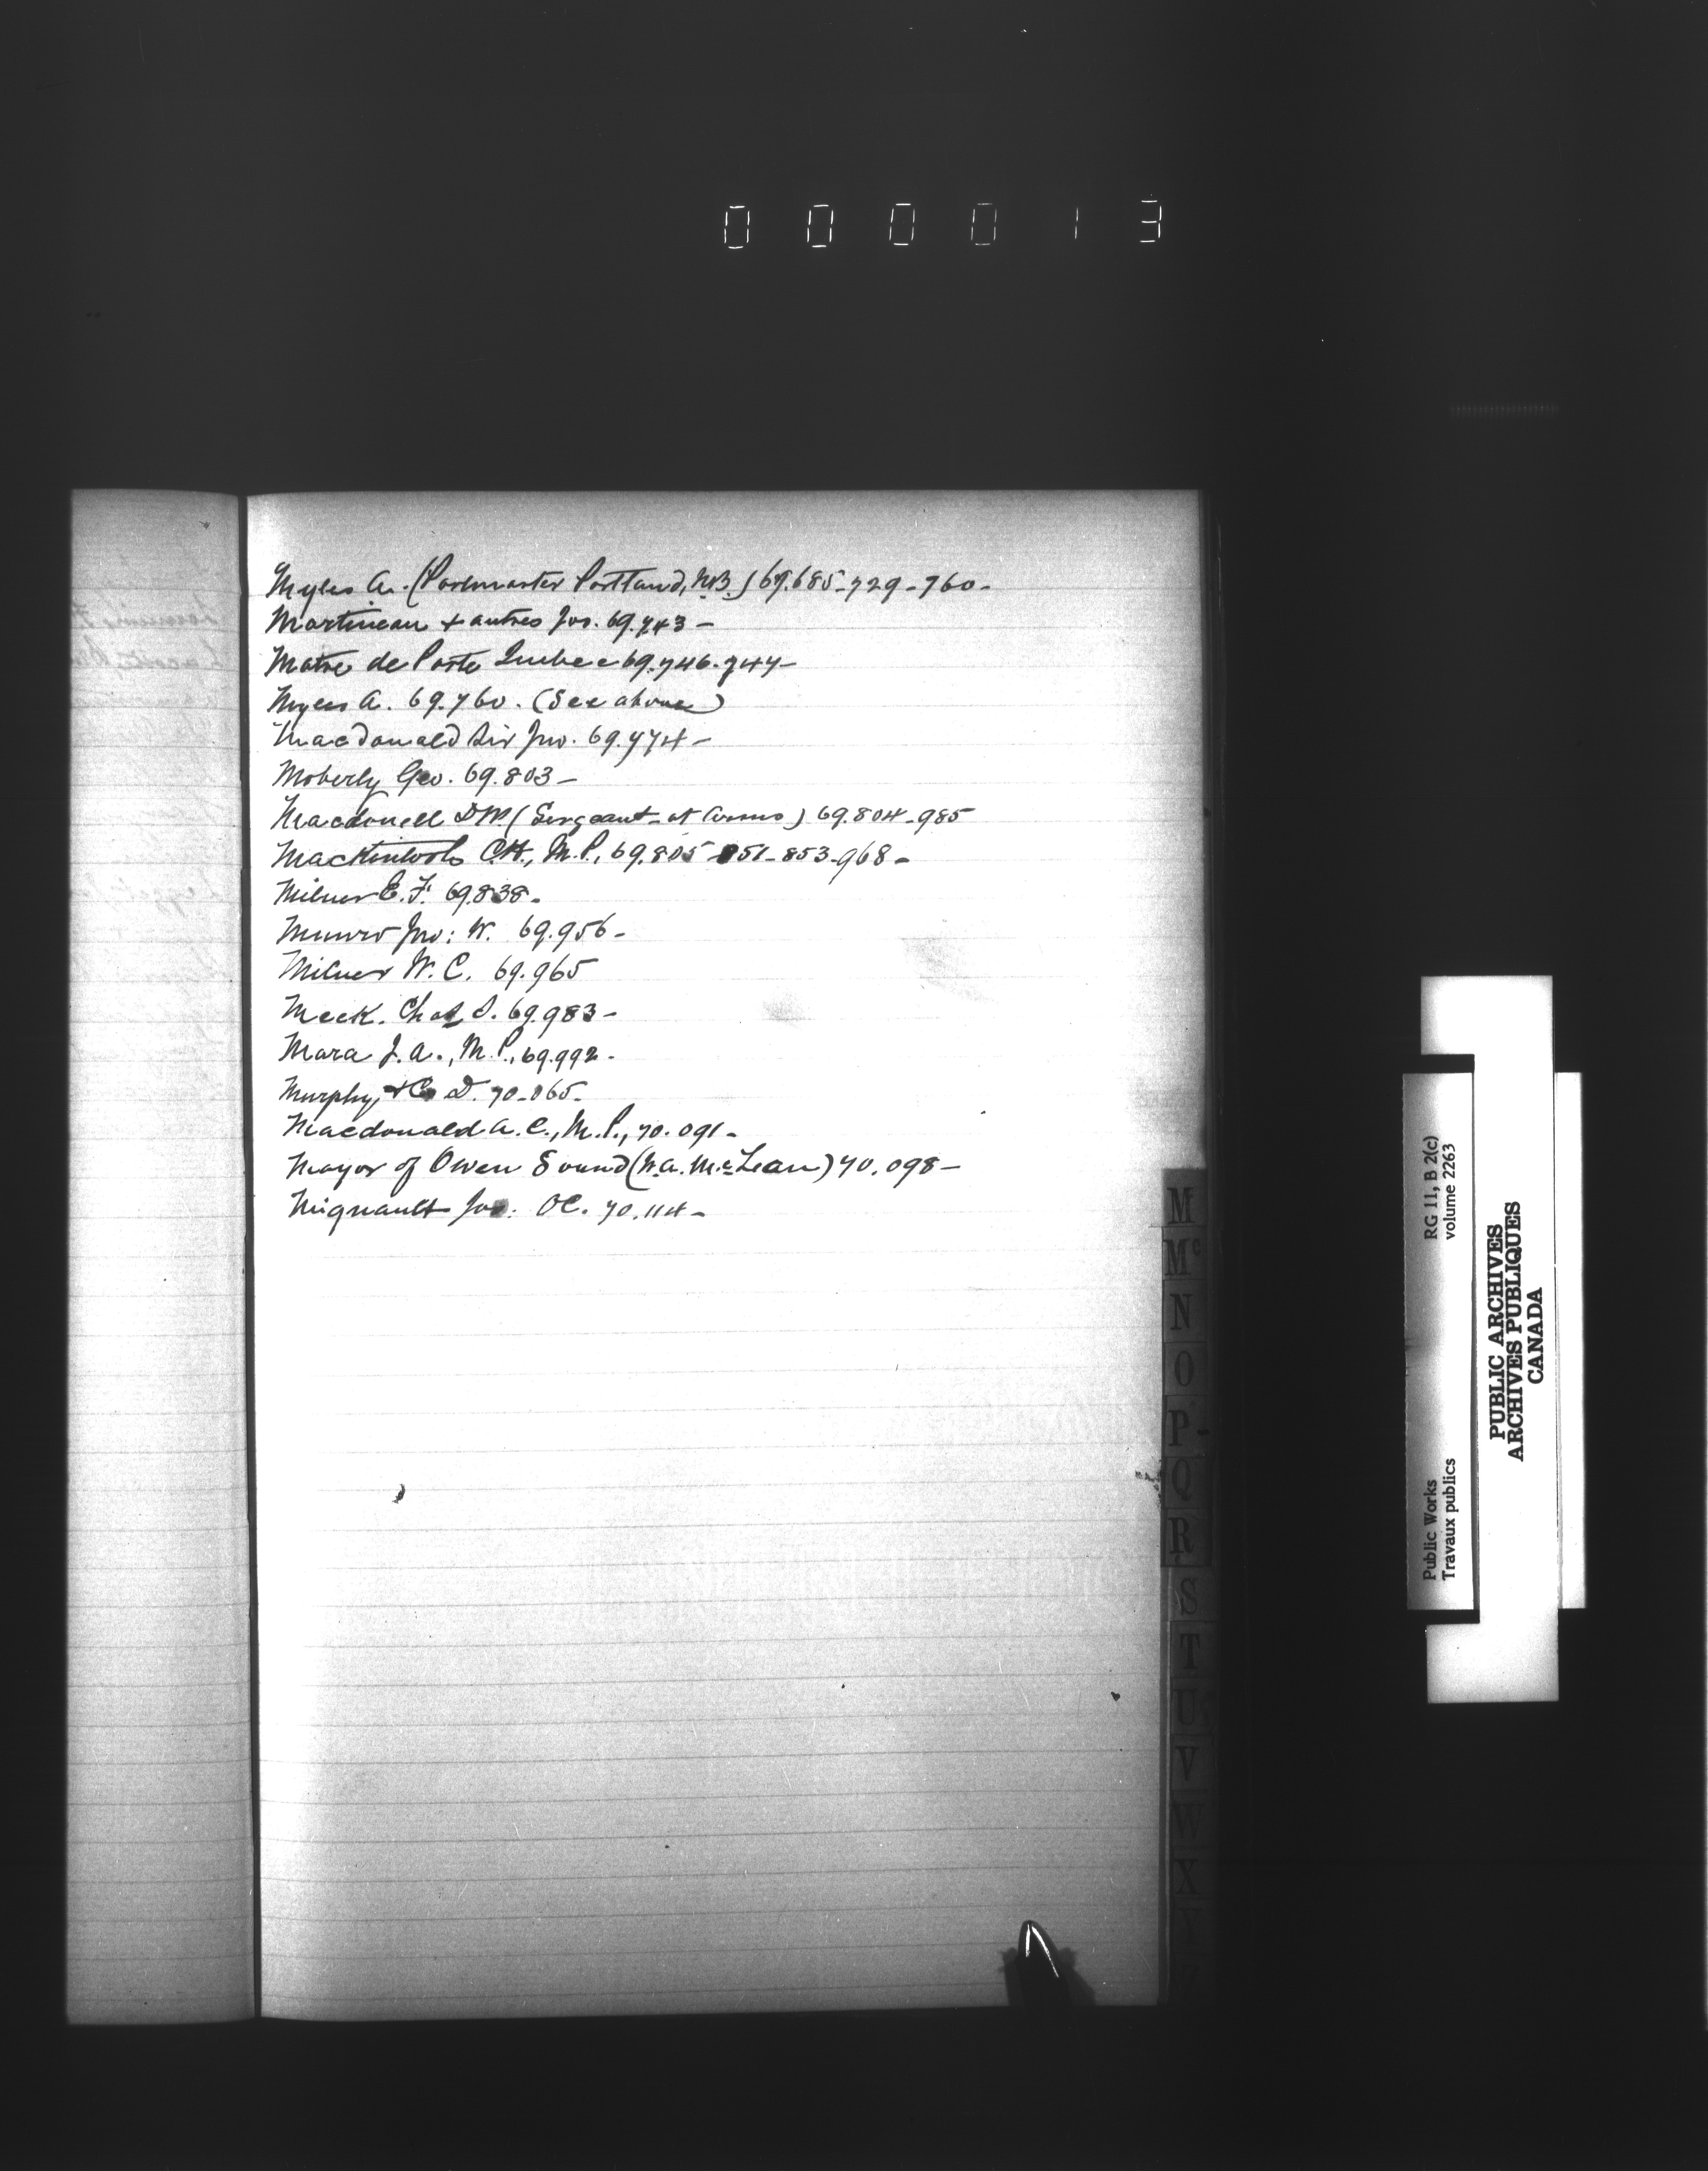 000013
Myles A. (Postmaster Portland, N.B.) 69.685-729-760-
Martineau & autres Jos. 69.743-
Maître de Poste Quebec 69.746.747-
Myles A. 69.760. (See above)
Macdonald Sir Jno. 69.774-
Moberly Geo. 69.803-
Macdonell D.W. (Sergeant-at Arms) 69.804-985
Mackintosh C.H., M.P., 69.805-851-853-968-
Milner E.F. 69.838-
Munro Jno: W. 69.956-
Milner W.C. 69.965
Meek. Chas S. 69.983-
Mara J.A., M.P., 69.992-
Murphy, & Co D. 70-065-
Macdonald A.C., M.P., 70.091-
Mayor of Owen Sound (W.A. McLean) 70.098-
Mignault Jos. OC. 70.114-
M
Mc
N
O
P
Q
R
S
T
U
V
W
X
Y
Z
Public Works RG 11, B 2(c)
Travaux publics volume 2263
PUBLIC ARCHIVES
ARCHIVES PUBLIQUES
CANADA